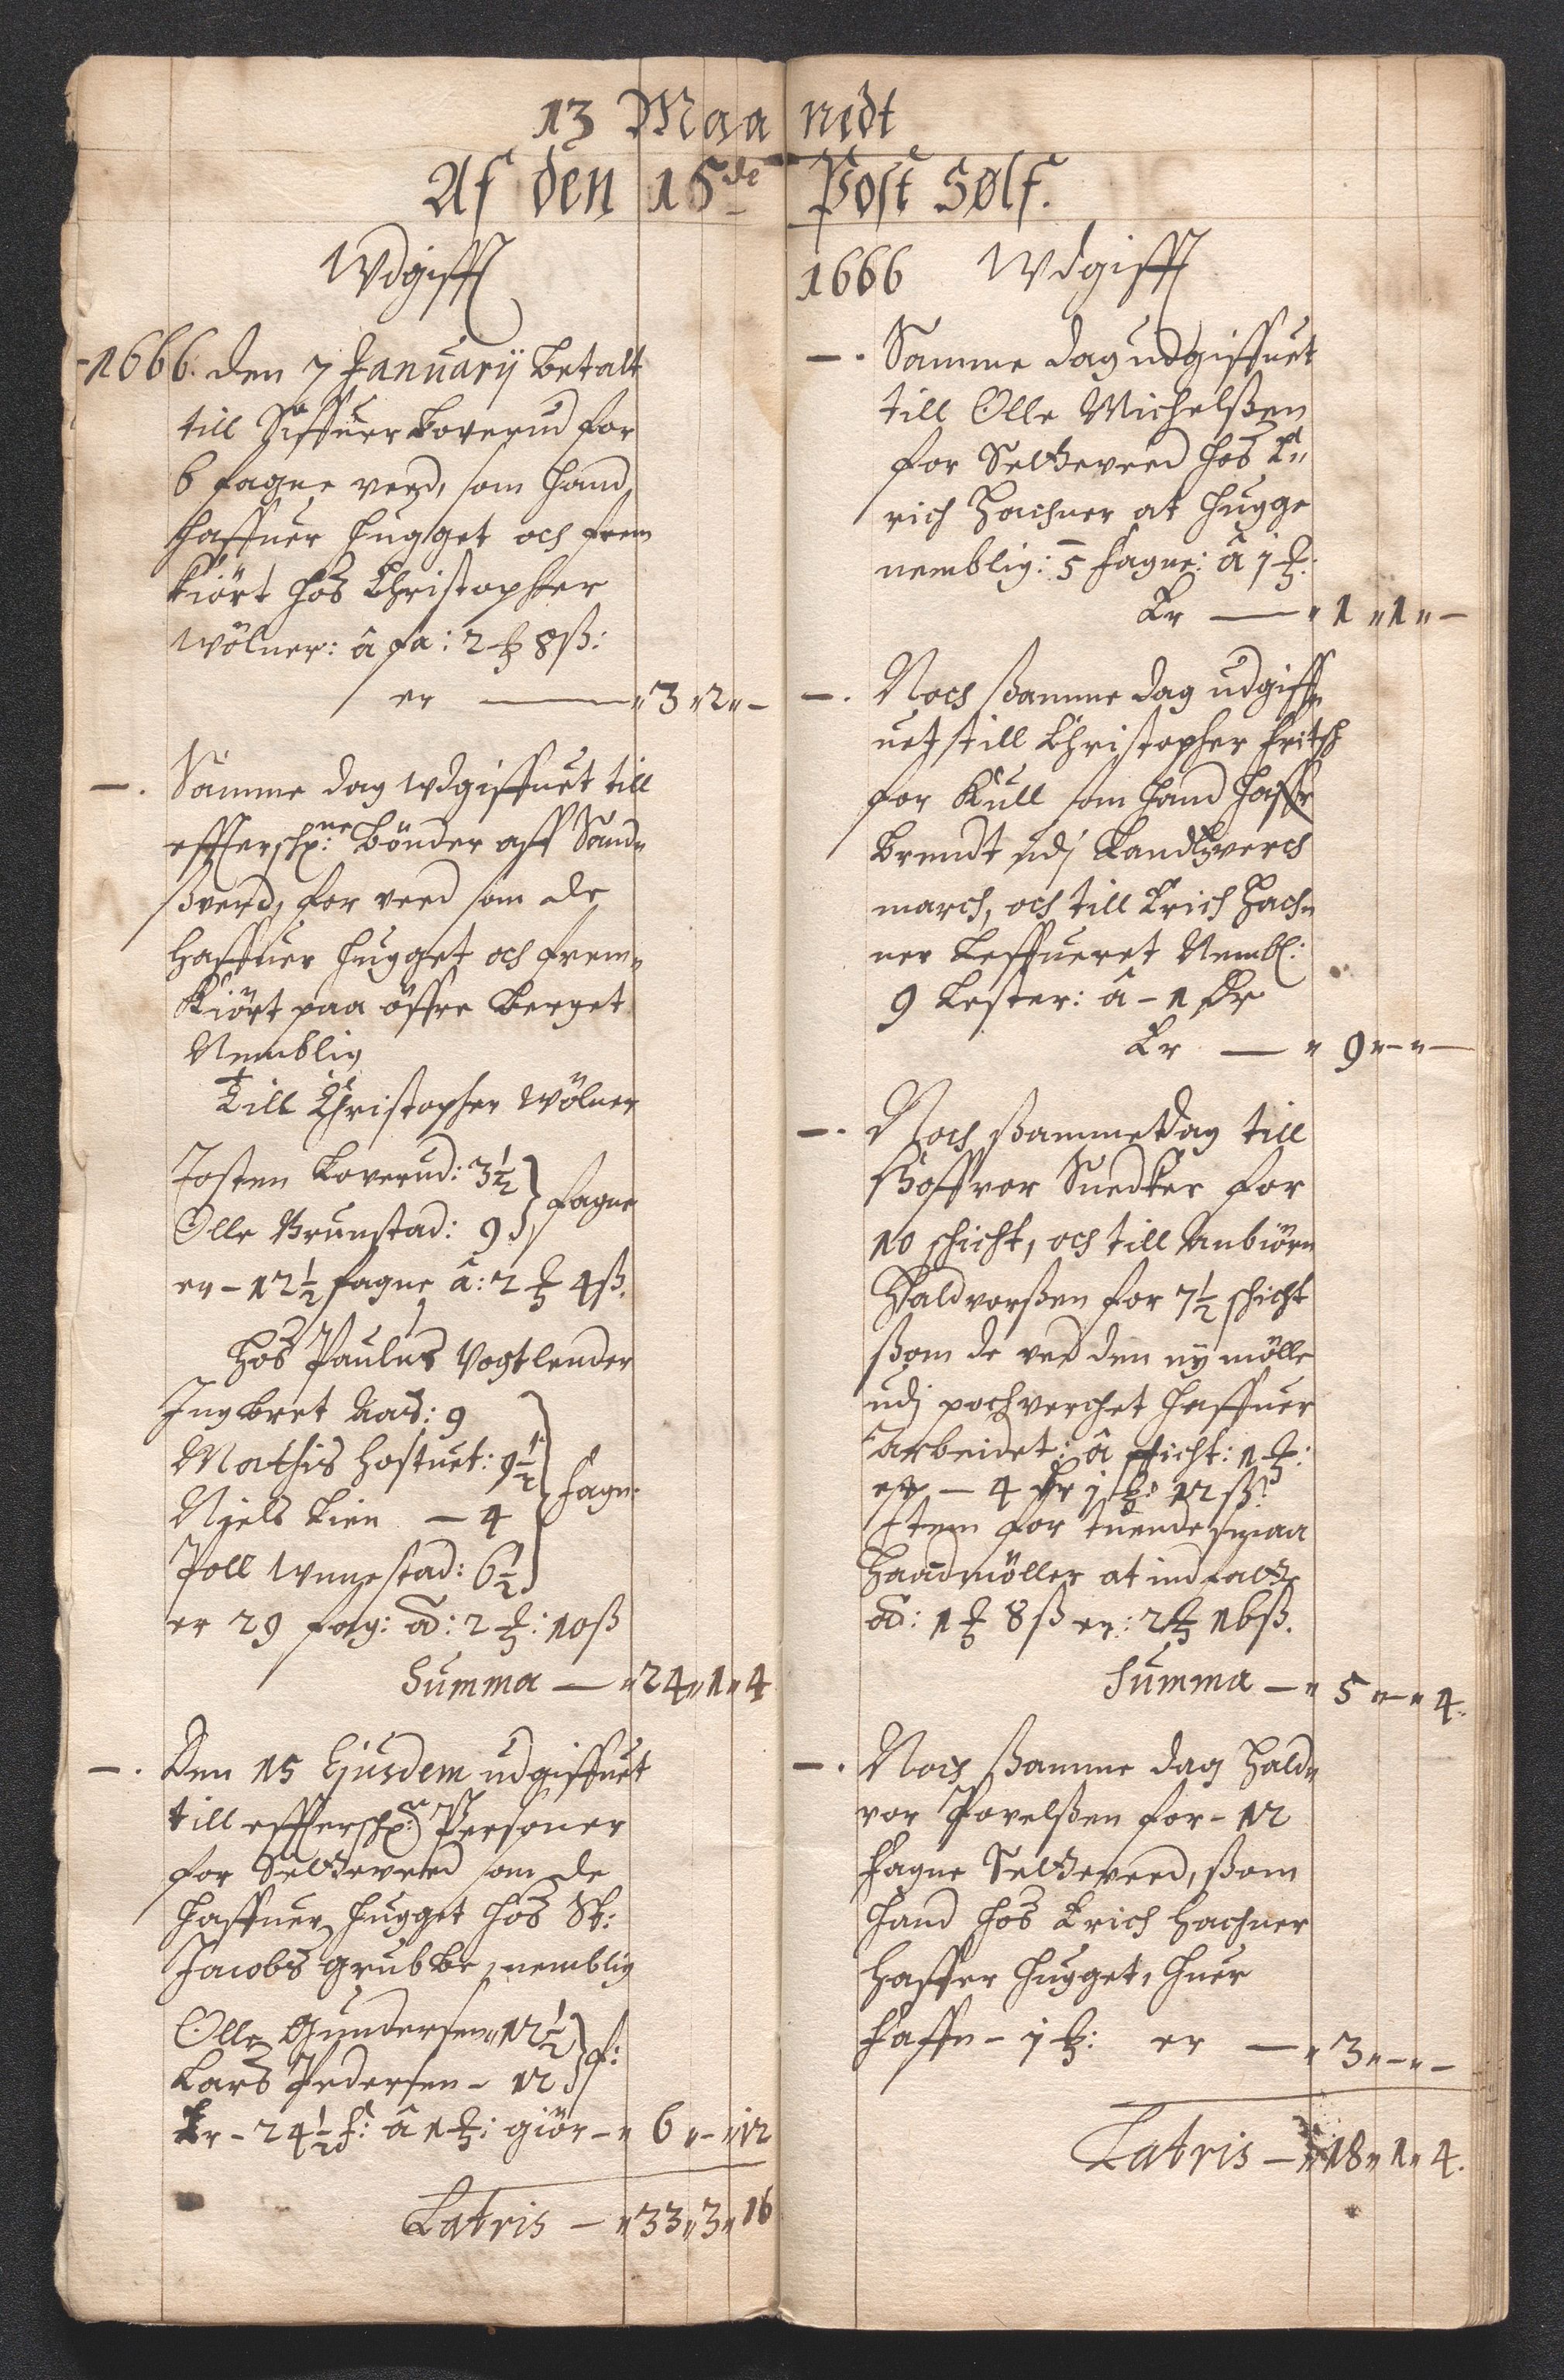 13 Maanidt
Af den 15de Post Sølf.
Wdgifft
1666. den 7 January betalt
till Siffuer Loverud for
6 fagne veed, som hand
haffuer hugget och frem
kiört hos Christopher
Wölner: â fa: 2 ℔ 8ß:
er — " 3 " 2 " -
—. Samme dag wdgiffuet till
effterschr:ne bönder aff Sand„
sverd, for veed som de
haffuer hugget och frem„
kiört paa öffre berget
Nemblig
till Christopher Wölner
Josten Loverud: 3½ } fagne
Olle Brunstad: 9
er - 12½ fagne â: 2 ℔ 4ß.
Hos Paulus Vogtlender
Ingbret Aas: 9
Mathis Hostuet: 9½ } fagn:
Niels Lien — 4
Poll Wnnestad: 6½
er 29 fag: ad: 2 ℔: 10ß
Summa — " 24 " 1 " 4
—. Den 15 Ejusdem udgiffuet
till effterschr:ne Personer
for Seltzeveed som de
haffuer hugget hos St:
Jacobs grubbe, nemblig
Olle Gundersen " 12½ } f:
Lars Pedersen - 12
Er - 24½ f: â 1 ℔: giör - " 6 " - " 12
Latris — " 33 " 3 " 16
1666 Wdgifft
—. Samme dag udgiffuet
till Olle Michelßen
for Seltzeveed hos E„
rich Hachner at hugge
nemblig: 5 fagne: â 1 ℔:
Er — " 1 " 1 " -
—. Noch ßamme dag udgiff„
uet till Christopher Fritsch
for Kull som hand haffr
brendt udj Sandtzverd
march, och till Erich Hach„
ner leffueret Nembl:
9 Lester: â - 1 Dr
Er — " 9 " - " -
—. Noch ßamme dag till
Snedker for
10 schicht, och till Anbiörn
Haldvorßen for 7½ schicht
ßom de ved den ny mölle
udj pochverchet haffuer
arbeidet: â schicht: 1 ℔:
er — 4 Dr 1 ℔: 12 ß:
Item for tuende smaa
Haandmöller at
ad: 1 ℔ 8 ß er: 2 ℔ 16ß.
Summa — " 5 " - " 4.
—. Noch ßamme dag Hald„
vor Povelßen for - 12
fagne Seltzeveed, ßom
hand hos Erich Hachner
haffuer hugget, huer
faffn - 1 ℔: er — " 3 " - " -
Latris — " 18 " 1 " 4.